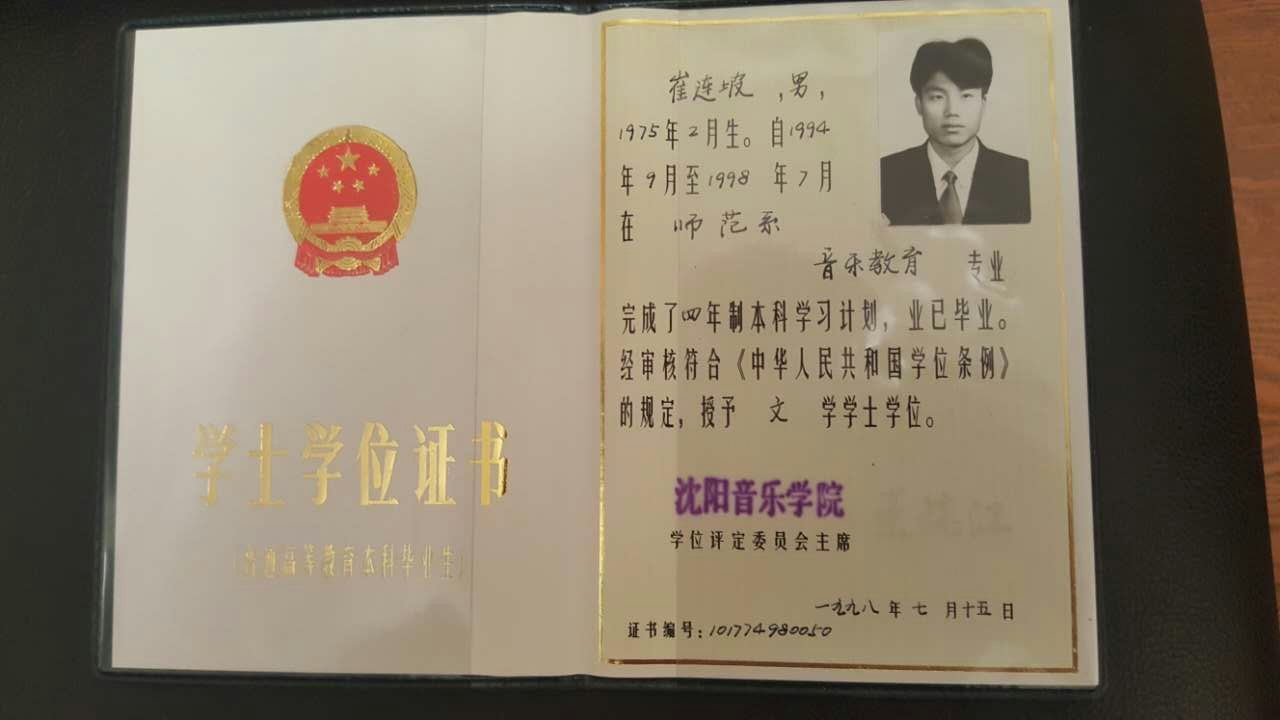 学士学位证书
(普通高等教育本科毕业生)
崔连坡,男,
1975年2月生。自1994
年9月至1998年7月
在 师范系
音乐教育 专业
完成了四年制本科学习计划,业已毕业。
经审核符合《中华人民共和国学位条例》
的规定,授予 文 学学士学位。
沈阳音乐学院
学位评定委员会主席
一九九八年七月十五日
证书编号:101774980050